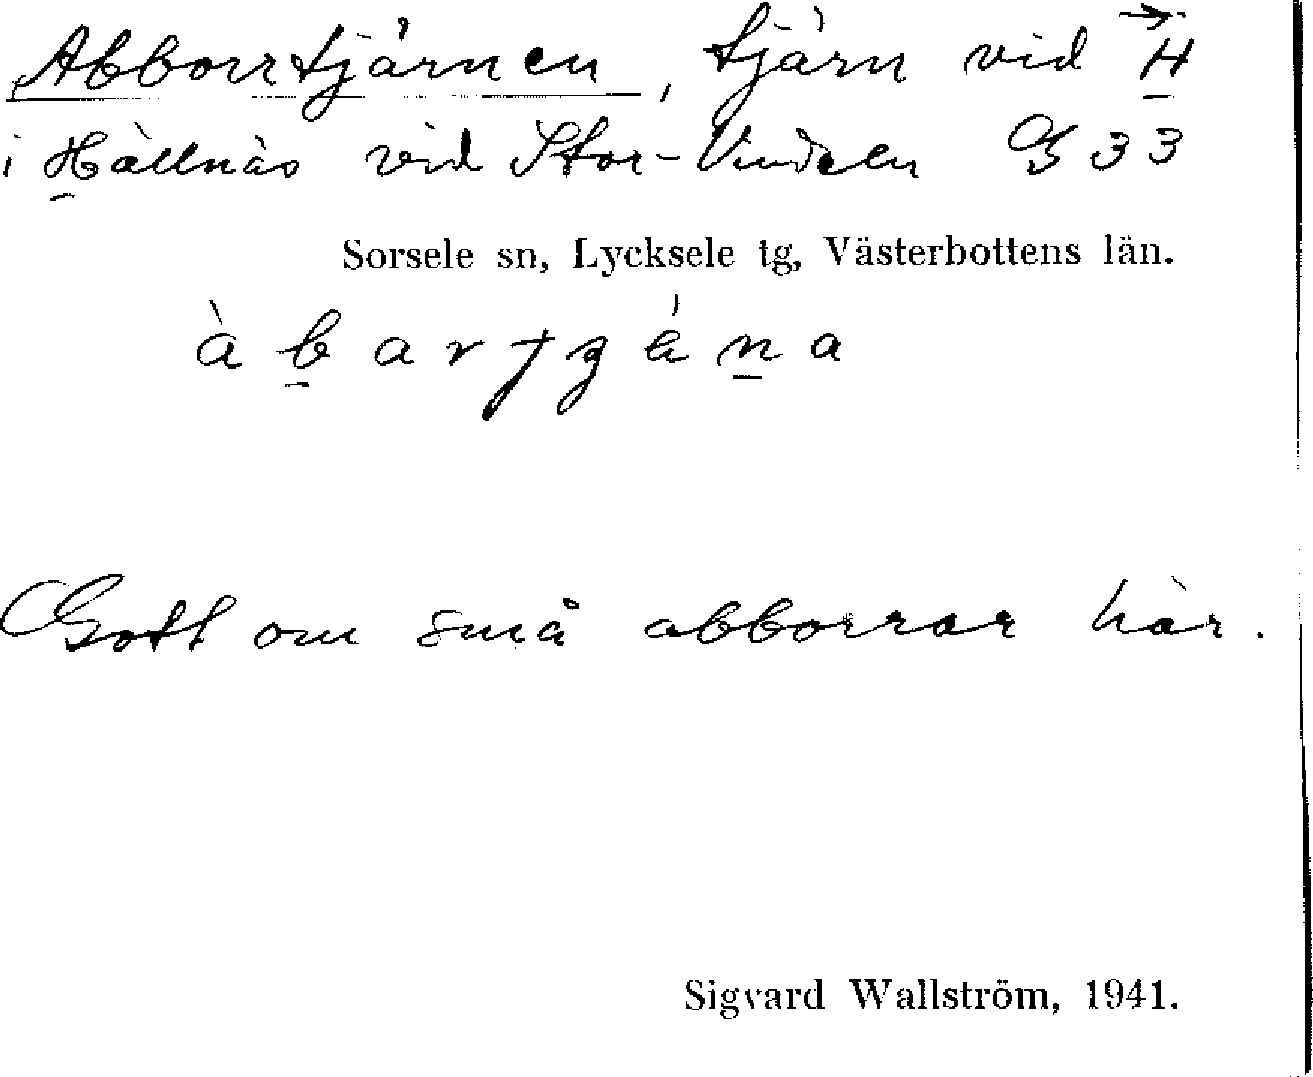 Abborrtjärnen, tjärn vid H
i Hällnäs vid Stor-Vindeln G 33
Sorsele sn, Lycksele tg, Västerbottens län.
Gott om små abborrar här.
Sigvard Wallström, 1941.